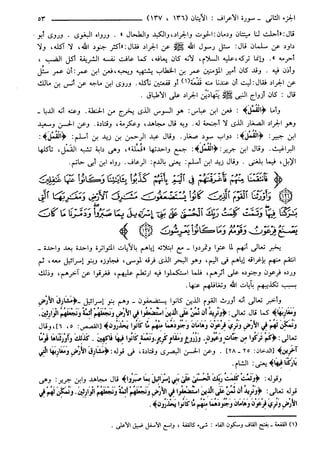 الجزء الثاني - سورة الأعراف : الآيتان (١٣٦ ، ١٣٧) ٥٣
قال: «أحلت لنا ميتتان ودمان: الحوت والجراد، والكبد والطحال» . ورواه البغوي . وروى أبو
داود عن سلمان قال: سئل رسول الله ﷺ عن الجراد فقال: «أكثر جنود الله، لا آكله، ولا
أحرمه» . وإنما تركه، عليه السلام، لأنه كان يعافه، كما عافت نفسه الشريفة أكل الضب ،
وأذن فيه . وقد كان أمير المؤمنين عمر بن الخطاب يشتهيه ويحبه، فعن ابن عمر: أن عمر سئل
عن الجراد فقال: ليت أن عندنا منه قفعة (١) أو قفعتين نأكله. وروى ابن ماجه عن أنس بن مالك
قال : كان أزواج النبي ﷺ يتهادين الجراد على الأطباق .
وأما ﴿القمل﴾ : فعن ابن عباس: هو السوس الذي يخرج من الحنطة. وعنه أنه الدبا -
وهو الجراد الصغار الذي لا أجنحة له . وبه قال مجاهد، وعكرمة، وقتادة. وعن الحسن وسعيد
ابن جبير: ﴿القمل﴾ : دواب سود صغار. وقال عبد الرحمن بن زيد بن أسلم: ﴿القمل﴾ :
البراغيث. وقال ابن جرير: ﴿القمل﴾ : جمع واحدتها «قملة»، وهي دابة تشبه القمل، تأكلها
الإبل، فيما بلغني. وقال زيد بن أسلم: يعني بالدم: الرعاف. رواه ابن أبي حاتم.
﴿فَانتَقَمْنَا مِنْهُمْ فَأَغْرَقْنَاهُمْ فِي الْيَمِّ بِأَنَّهُمْ كَذَّبُوا بِآيَاتِنَا وَكَانُوا عَنْهَا غَافِلِينَ
وَأَوْرَثْنَا الْقَوْمَ الَّذِينَ كَانُوا يُسْتَضْعَفُونَ مَشَارِقَ الْأَرْضِ وَمَغَارِبَهَا الَّتِي بَارَكْنَا
فِيهَا وَتَمَّتْ كَلِمَتُ رَبِّكَ الْحُسْنَى عَلَى بَنِي إِسْرَائِيلَ بِمَا صَبَرُوا وَدَمَّرْنَا مَا كَانَ
يَصْنَعُ فِرْعَوْنُ وَقَوْمُهُ وَمَا كَانُوا يَعْرِشُونَ﴾
يخبر تعالى أنهم لما عتوا وتمردوا - مع ابتلائه إياهم بالآيات المتواترة واحدة بعد واحدة -
انتقم منهم بإغراقه إياهم في اليم، وهو البحر الذي فرقه لموسى، فجاوزه وبنو إسرائيل معه، ثم
ورده فرعون وجنوده على أثرهم، فلما استكملوا فيه ارتطم عليهم، فغرقوا عن آخرهم، وذلك
بسبب تكذيبهم بآيات الله وتغافلهم عنها.
وأخبر تعالى أنه أورث القوم الذين كانوا يستضعفون - وهم بنو إسرائيل - ﴿مشارق الأرض
ومغاربها﴾ كما قال تعالى: ﴿ونريد أن نمن على الذين استضعفوا في الأرض ونجعلهم أئمة ونجعلهم الوارثين.
ونمكن لهم في الأرض ونري فرعون وهامان وجنودهما منهم ما كانوا يحذرون﴾ [القصص: ٥، ٦]، وقال
تعالى: ﴿كم تركوا من جنات وعيون. وزروع ومقام كريم. ونعمة كانوا فيها فاكهين. كذلك وأورثناها قوما
آخرين﴾ [الدخان: ٢٥ - ٢٨]. وعن الحسن البصري وقتادة، في قوله: ﴿مشارق الأرض ومغاربها التي
باركنا فيها﴾ يعني: الشام.
وقوله: ﴿وتمت كلمت ربك الحسنى على بني إسرائيل بما صبروا﴾ قال مجاهد وابن جرير: وهي
قوله تعالى: ﴿ونريد أن نمن على الذين استضعفوا في الأرض ونجعلهم أئمة ونجعلهم الوارثين. ونمكن لهم في
الأرض ونري فرعون وهامان وجنودهما منهم ما كانوا يحذرون﴾.
(١) القفعة - بفتح القاف وسكون الفاء : شيء كالقفة ، واسع الأسفل ضيق الأعلى .